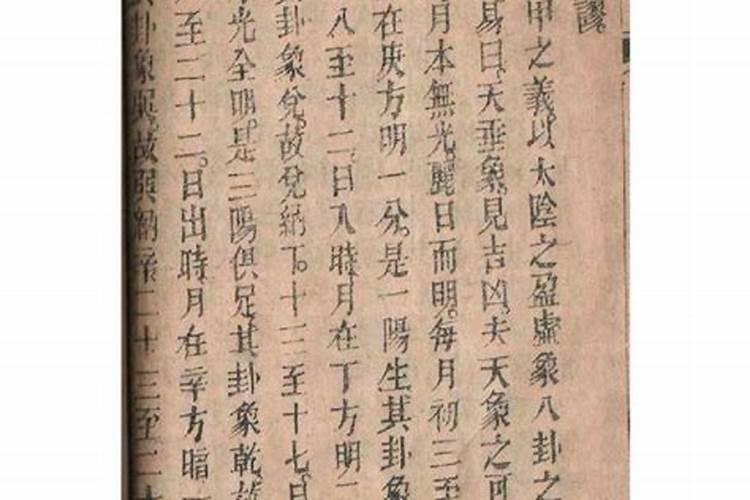 謬
甲之義。以太陰之盈虛象八卦之
易曰。天垂象。見吉凶。夫天象之可
月本無光。麗日而明。每月初三至
在庚方明一分。是一陽生。其卦象
八至十二。日入時月在丁方明二
卦象兌。故兌納丁。十三至十七。日
光全明。是三陽俱足。其卦象乾。故
至二十二。日出時月在辛方暗
卦象巽。故巽納辛。二十三至二十